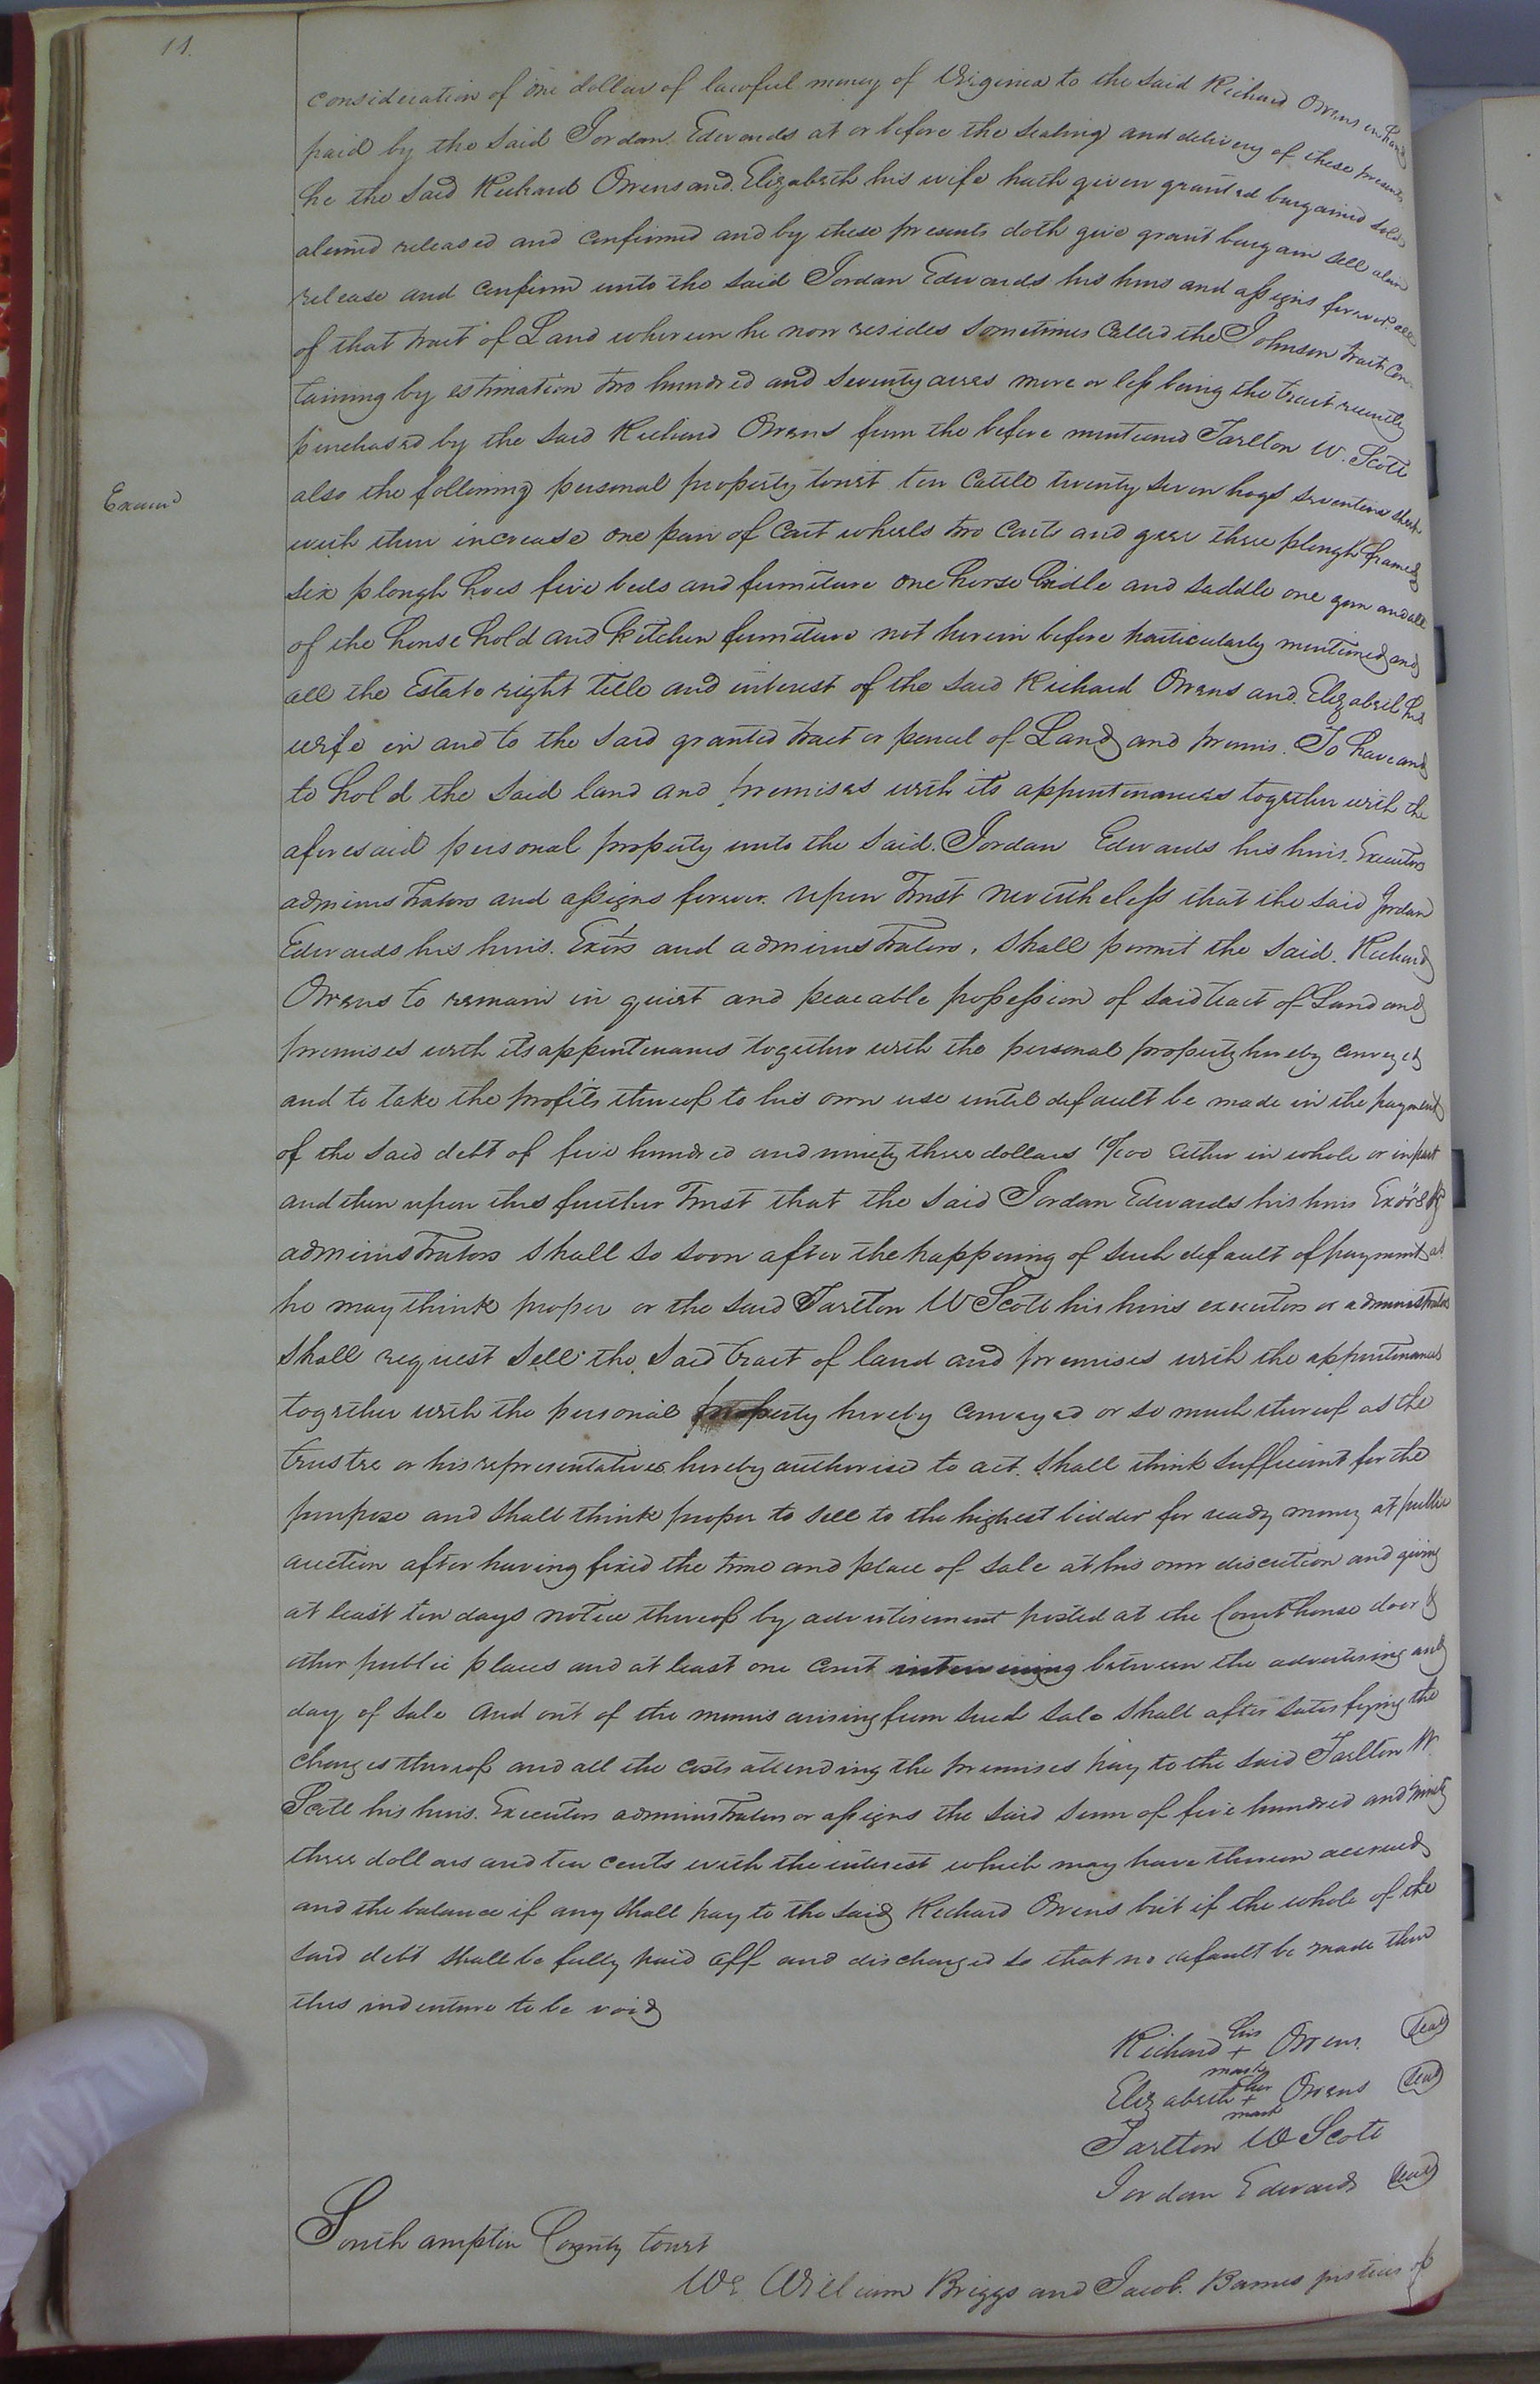 11.
consideration of one dollar of lawful money of Virginia to the said Richard Owens in hand
paid by the said Jordan Edwards at or before the sealing and delivery of these presents
he the said Richard Owens and Elizabeth his wife hath given granted bargained sold
aliened released and confirmed and by these presents doth give grant bargain sell alien
release and confirm unto the said Jordan Edwards his heirs and assigns forever all
of that tract of Land whereon he now resides sometimes Called the Johnson tract Con
taining by estimation two hundred and seventy acres more or less being the tract recently
purchased by the said Richard Owens from the before mentioned Tarlton W. Scott
also the following personal property towit ten Cattle twenty seven hogs seventeen sheep
Examd
with their increase one pair of Cart wheels two Carts and gear three plough frames
six plough hoes five beds and furniture one horse bridle and saddle one gun and all
of the house hold and kitchen furniture not herein before particularly mentioned and
all the Estate right title and interest of the said Richard Owens and Elizabeth his
wife in and to the said granted tract or parcel of Land and premis. To have and
to hold the said land and premises with its appurtenances together with the
aforesaid personal property unto the said Jordan Edwards his heirs. Executors
administrators and assigns forever. Upon Trust nevertheless that the said Jordan
Edwards his heirs. Exōrs and administrators, shall permit the said. Richard
Owens to remain in quiet and peaceable possession of said tract of Land and
premises with its appurtenances together with the personal property hereby conveyed
and to take the profits thereof to his own use until default be made in the payment
of the said debt of five hundred and ninety three dollars 10/100 either in whole or in part
and then upon this further Trust that the said Jordan Edwards his heirs Exōrs &
administrators shall so soon after the happening of such default of payment as
he may think proper or the said Tarlton W Scott his heirs executors or administrators
shall request sell the said tract of land and premises with the appurtenances
together with the personal property hereby conveyed or so much thereof as the
trustee or his representatives hereby authorised to act. shall think sufficient for the
purpose and shall think proper to sell to the highest bidder for ready money at public
auction after having fixed the time and place of sale at his own discretion and giving
at least ten days notice thereof by advertisement posted at the Courthouse door &
other public places and at least one court intervening between the advertising and
day of sale And out of the monies arising from such sale shall after satisfying the
charges thereof and all the costs attending the premises pay to the said Tarlton W.
Scott his heirs. Executors administrators or assigns the said sum of five hundred and ninety
three dollars and ten cents with the interest which may have thereon accrued
and the balance if any shall pay to the said Richard Owens but if the whole of the
said debt shall be fully paid off and discharged so that no default be made then
this indenture to be void
Richard his + mark Owens. Seal
Elizabeth her + mark Owens Seal
Tarlton W Scott
Jordan Edwards Seal
Southampton County towit
We William Briggs and Jacob. Barnes justices of